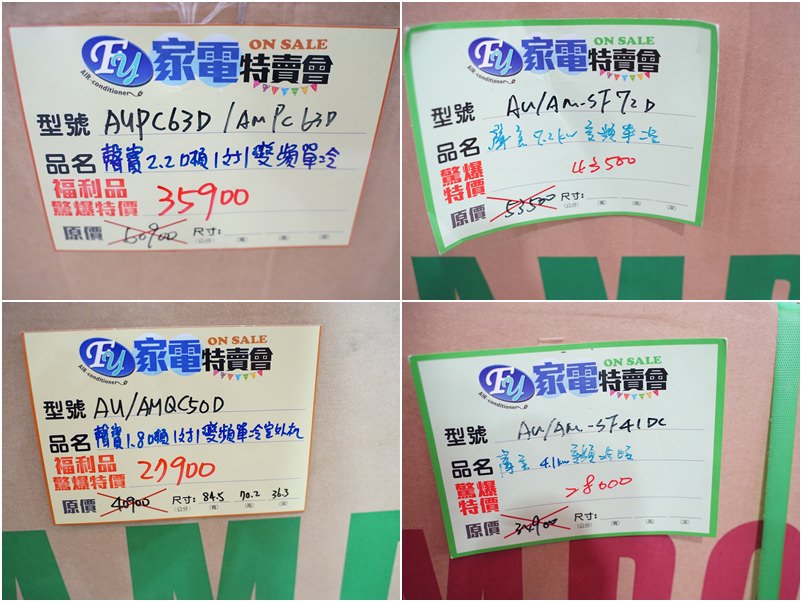 FY 家電特賣會 ON SALE
AIR-conditioner
型號 AUPC63D / AMPC63D
品名 聲寶2.2噸1對1變頻單冷
福利品
驚爆特價 35900
原價 60900 尺寸:
(公分) (寬) (高) (深)
FY 家電特賣會 ON SALE
AIR-conditioner
型號 AU/AM-SF72D
品名 聲寶7.2kw變頻單冷
驚爆
特價 43500
原價 53500 尺寸:
(公分) (寬) (高) (深)
AMP
FY 家電特賣會 ON SALE
AIR-conditioner
型號 AU/AMQC50D
品名 聲寶1.8噸1對1變頻單冷室外机
福利品
驚爆特價 27900
原價 40900 尺寸: 84.5 70.2 36.3
(公分) (寬) (高) (深)
AM
FY 家電特賣會 ON SALE
AIR-conditioner
型號 AU/AM-SF41DC
品名 聲寶 4.1kw變頻冷暖
驚爆
特價 28000
原價 34900 尺寸:
(公分) (寬) (高) (深)
MPO